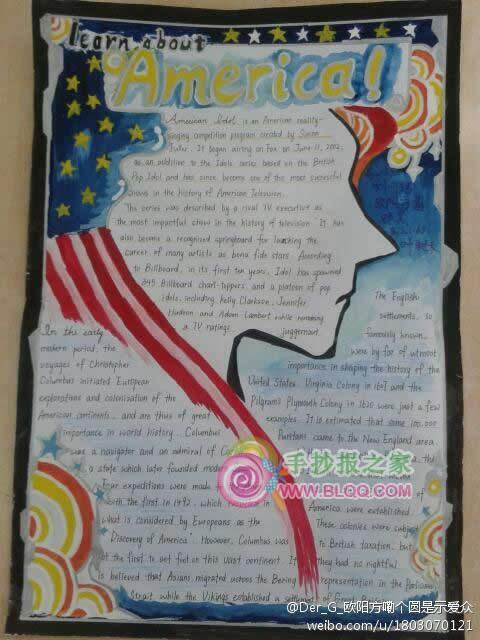 learn about
America!
American Idol is an American reality-
singing competition program created by Simon
Fuller. It began airing on Fox on June 11, 2002,
as an addition to the Idols series based on the British
Pop Idol and has since become one of the most successful
shows in the history of American Television.
The series was described by a rival TV executive as
the most impactful show in the history of television. It has
also become a recognized springboard for launching the
career of many artists as bona fide stars. According
to Billboard, in its first ten years, Idol has spawned
345 Billboard chart-toppers and a platoon of pop
idols, including Kelly Clarkson, Jennifer
Hudson and Adam Lambert while remaining
a TV ratings juggernaut.
In the early
modern period, the
voyages of Christopher
Columbus initiated European
explorations and colonisation of the
American continents, and are thus of great
importance in world history. Columbus
was a navigator and an admiral of
a state which later founded modern
Four expeditions were made
with the first in 1492, which
what is considered by Europeans as the
Discovery of America. However, Columbus was
not the first to set foot on this vast continent. It
is believed that Asians migrated across the Bering
Strait while the Vikings established a settlement
The English
settlements, so
famously known
were by far of utmost
importance in shaping the history of the
United States. Virginia Colony in 1607 and the
Pilgrams Plymouth Colony in 1620 were just a few
examples. It is estimated that some 100,000
Puritans came to the New England area.
the
of
America were established.
These colonies were subject
to British taxation, but
they had no rightful
representation in the Parliament
of Great
手抄报之家
WWW.BLQQ.COM
@Der_G_欧阳方嘞个圆是示爱众
weibo.com/u/1803070121